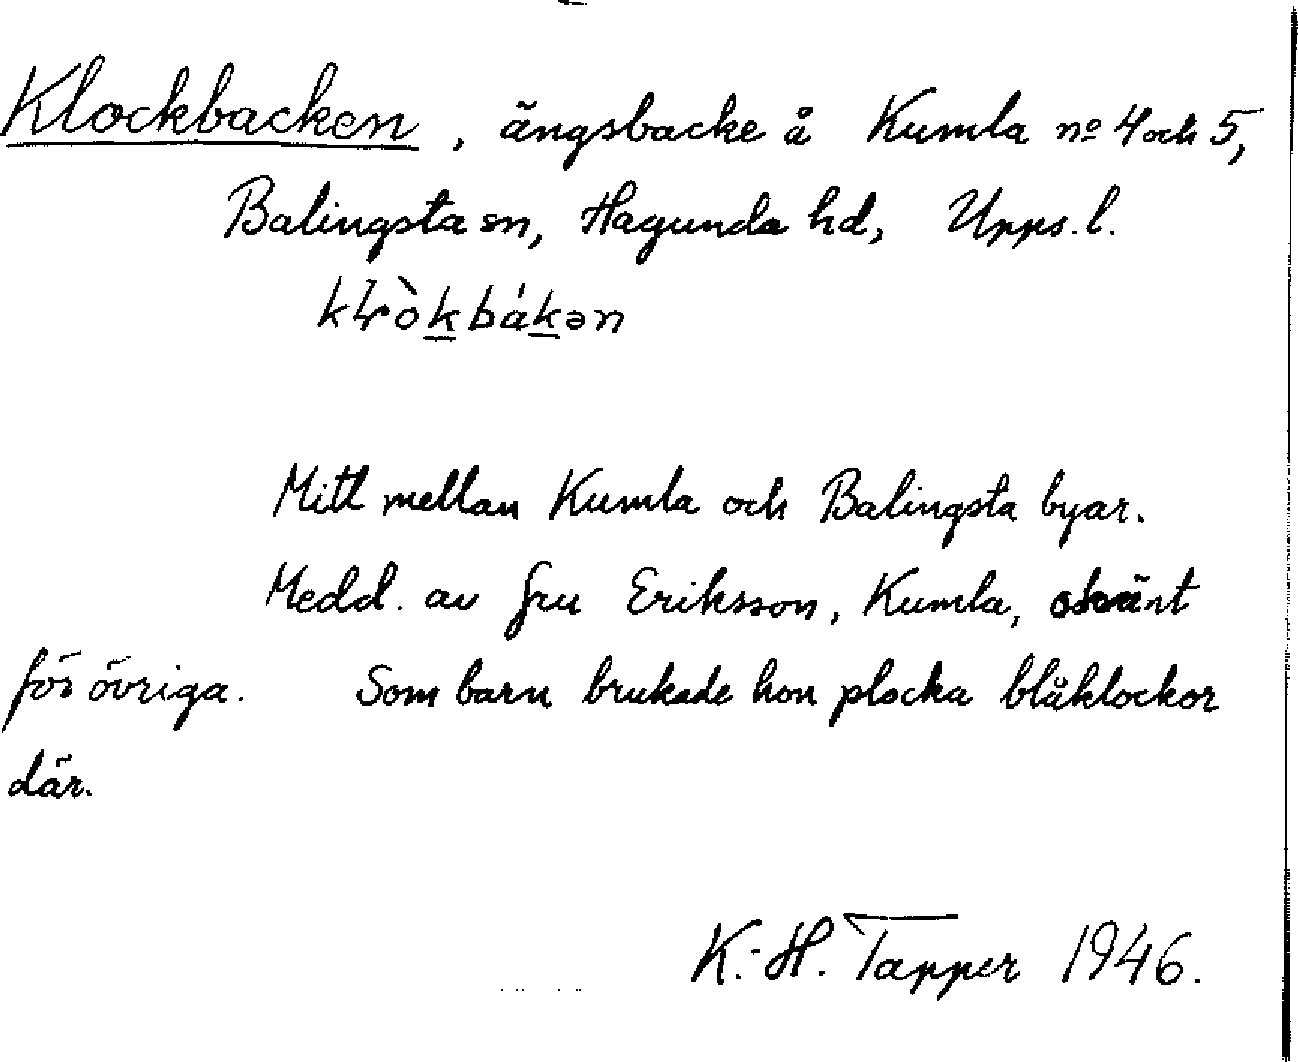 Klockbacken, ängsbacke å Kumla nº 4 och 5,
Balingsta sn, Hagunda hd, Upps. l.
Mitt mellan Kumla och Balingsta byar.
Medd. av fru Eriksson, Kumla, okänt
för övriga. Som barn brukade hon plocka blåklockor
där.
K.-H. Tapper 1946.